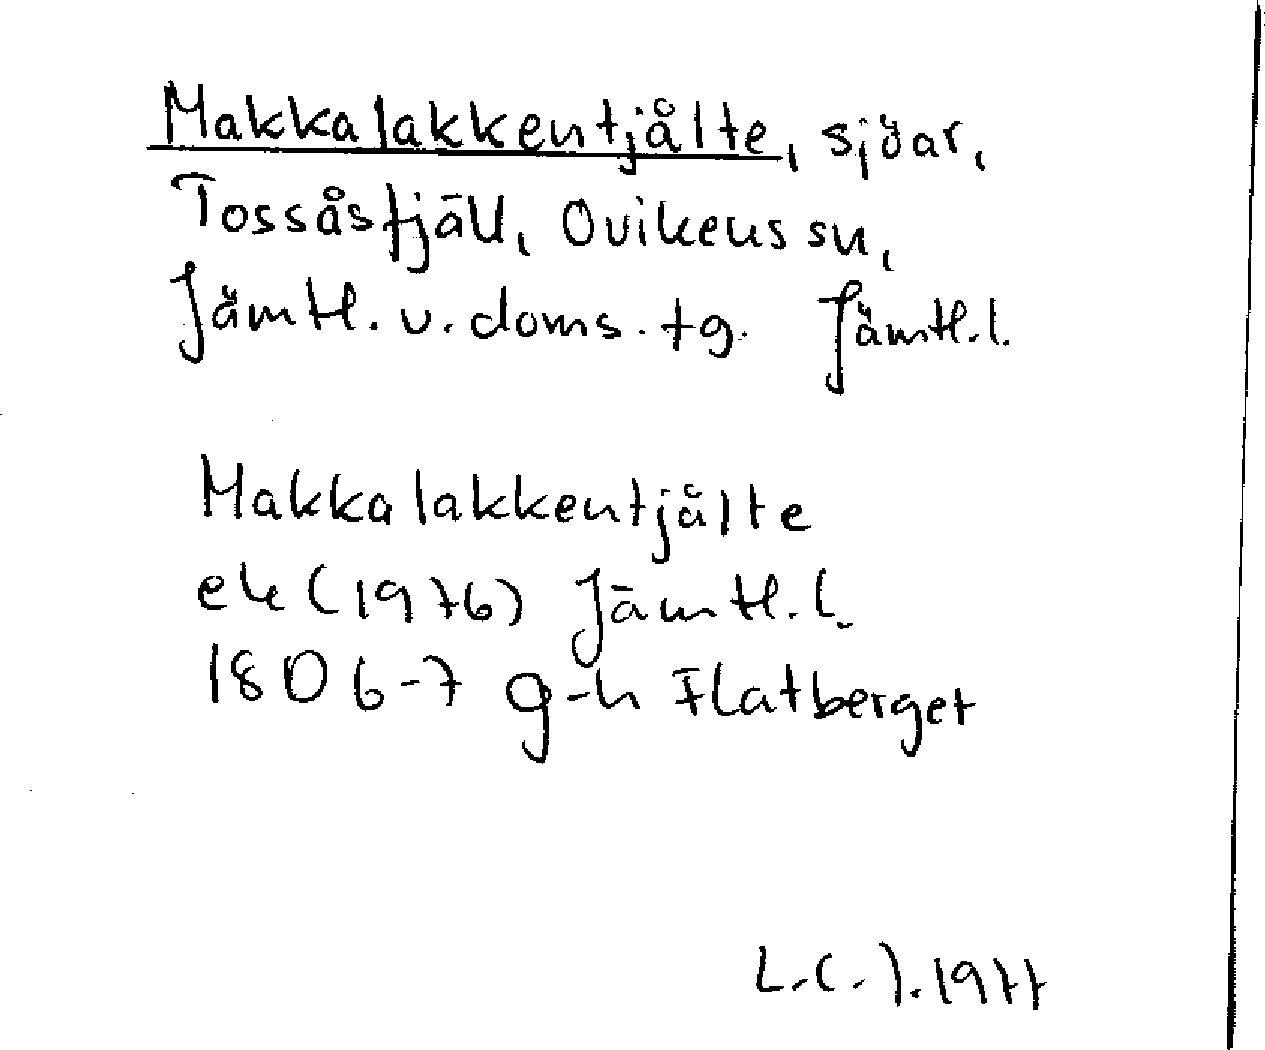 Makkalakkentjålte, sjöar,
Tossåsfjäll, Ovikens sn,
Jämtl. v. doms. tg. Jämtl. l.
Makkalakkentjålte
ek (1976) Jämtl. l.
1806-7 g-h Flatberget
L.C.J. 1977